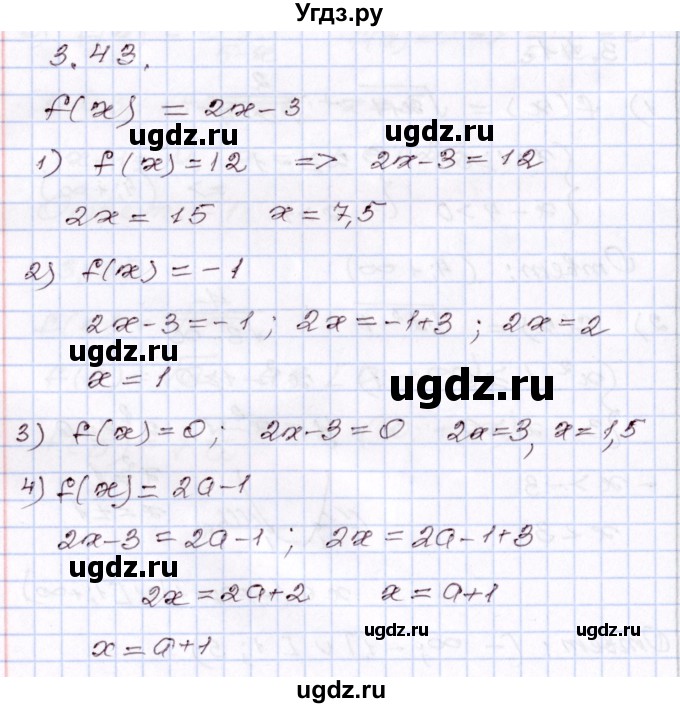 Угдз.ру
3.43.
f(x) = 2x-3
ugdz.ru ugdz.ru
1) f(x)=12 => 2x-3=12
2x = 15 x = 7,5
2) f(x) = -1
2x-3=-1; 2x=-1+3; 2x=2
ugdz.ru
x = 1 ugdz.ru
3) f(x)=0; 2x-3=0 2x=3, x=1,5
4) f(x)= 2a-1
2x-3 = 2a-1; 2x = 2a-1+3
ugdz.ru
2x = 2a+2 x = a+1
ugdz.ru ugdz.ru
x = a+1
ugdz.ru